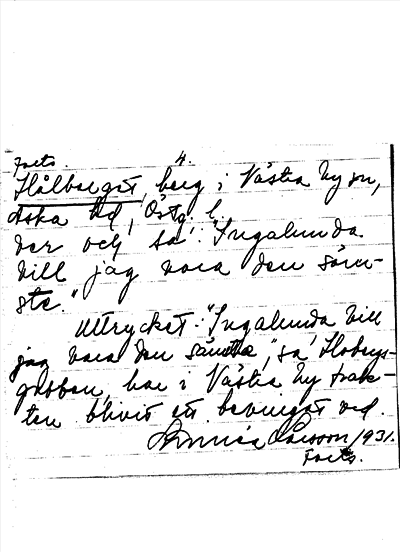 Forts. 4.
Hålberget, berg i Västra Ny sn,
Aska hd, Östg. l.
ver och sa': "Ingalunda
vill jag vara den säm-
sta."
Uttrycket: "Ingalunda vill
jag vara den sämsta", sa' Hobergs-
gubben, har i Västra Ny trak-
ten blivit ett bevinget ord.
Annie Larsson 1931.
Forts.